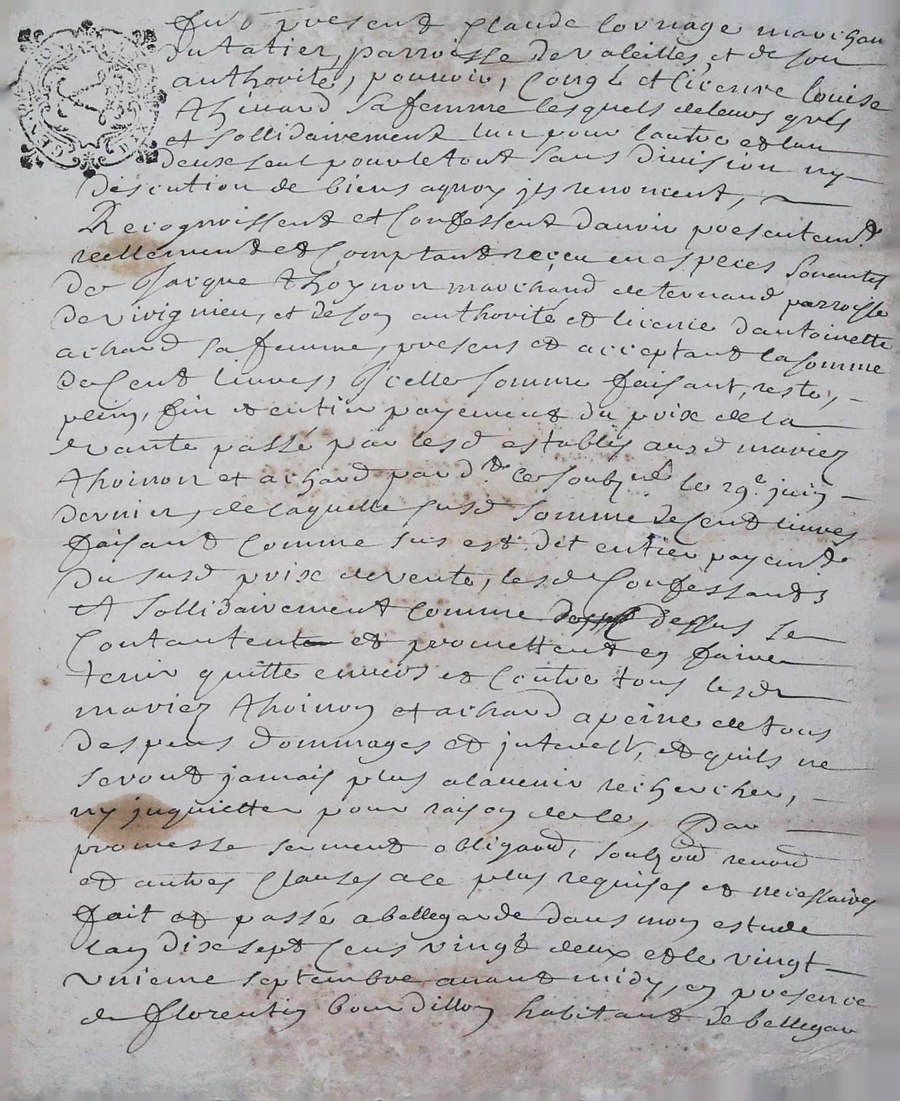 fut present Claude Cornage marchan
du tatier, parroisse de valeilles, et de son
authorité, pouvoir, Congé et licence louise
thivard sa femme lesquels de leurs grés
et sollidairement lun pour lautre et lun
deux seul pour le tout sans division ny
discution de biens aquoy jls renoncent,
Recognoissent et Confessent davoir presentemt
reellement et Comptant reçeu en especes sonantes
de Jacque thoynon marchand de ternand parroisse
de virignieu, et de son authorité et licence dantoinette
achard sa femme, presens et acceptant la somme
de Cent livres, Jcelle somme faisant, reste,
plein, fin et entier payement du prix de la
vante passé par lesd establis ausd mariez
thoinon et achard pard. le soubzné le 29e juin
dernier, de laquelle susd somme de Cent livres
faisant Comme sus est dit entier payemt
du susd prix de vente, lesd Confessants
et sollidairement Comme dessus se
Contantent et promettent en faire
tenir quitte envers et Contre tous lesd
mariez thoinon et achard a peine de tous
despens dommages et interests, et quils ne
seront jamais plus a lavenir rechercher,
ny jnquietter pour raison dele, Par
promesse serment obligaon, soubzon renon
et autres Clauses a ce plus requises et necessaires
fait et passé a bellegarde dans mon estude
lan dix sept Cens vingt deux et le vingt
unieme septembre avant midy, en presence
de florentin bourdillon habitant de bellegar